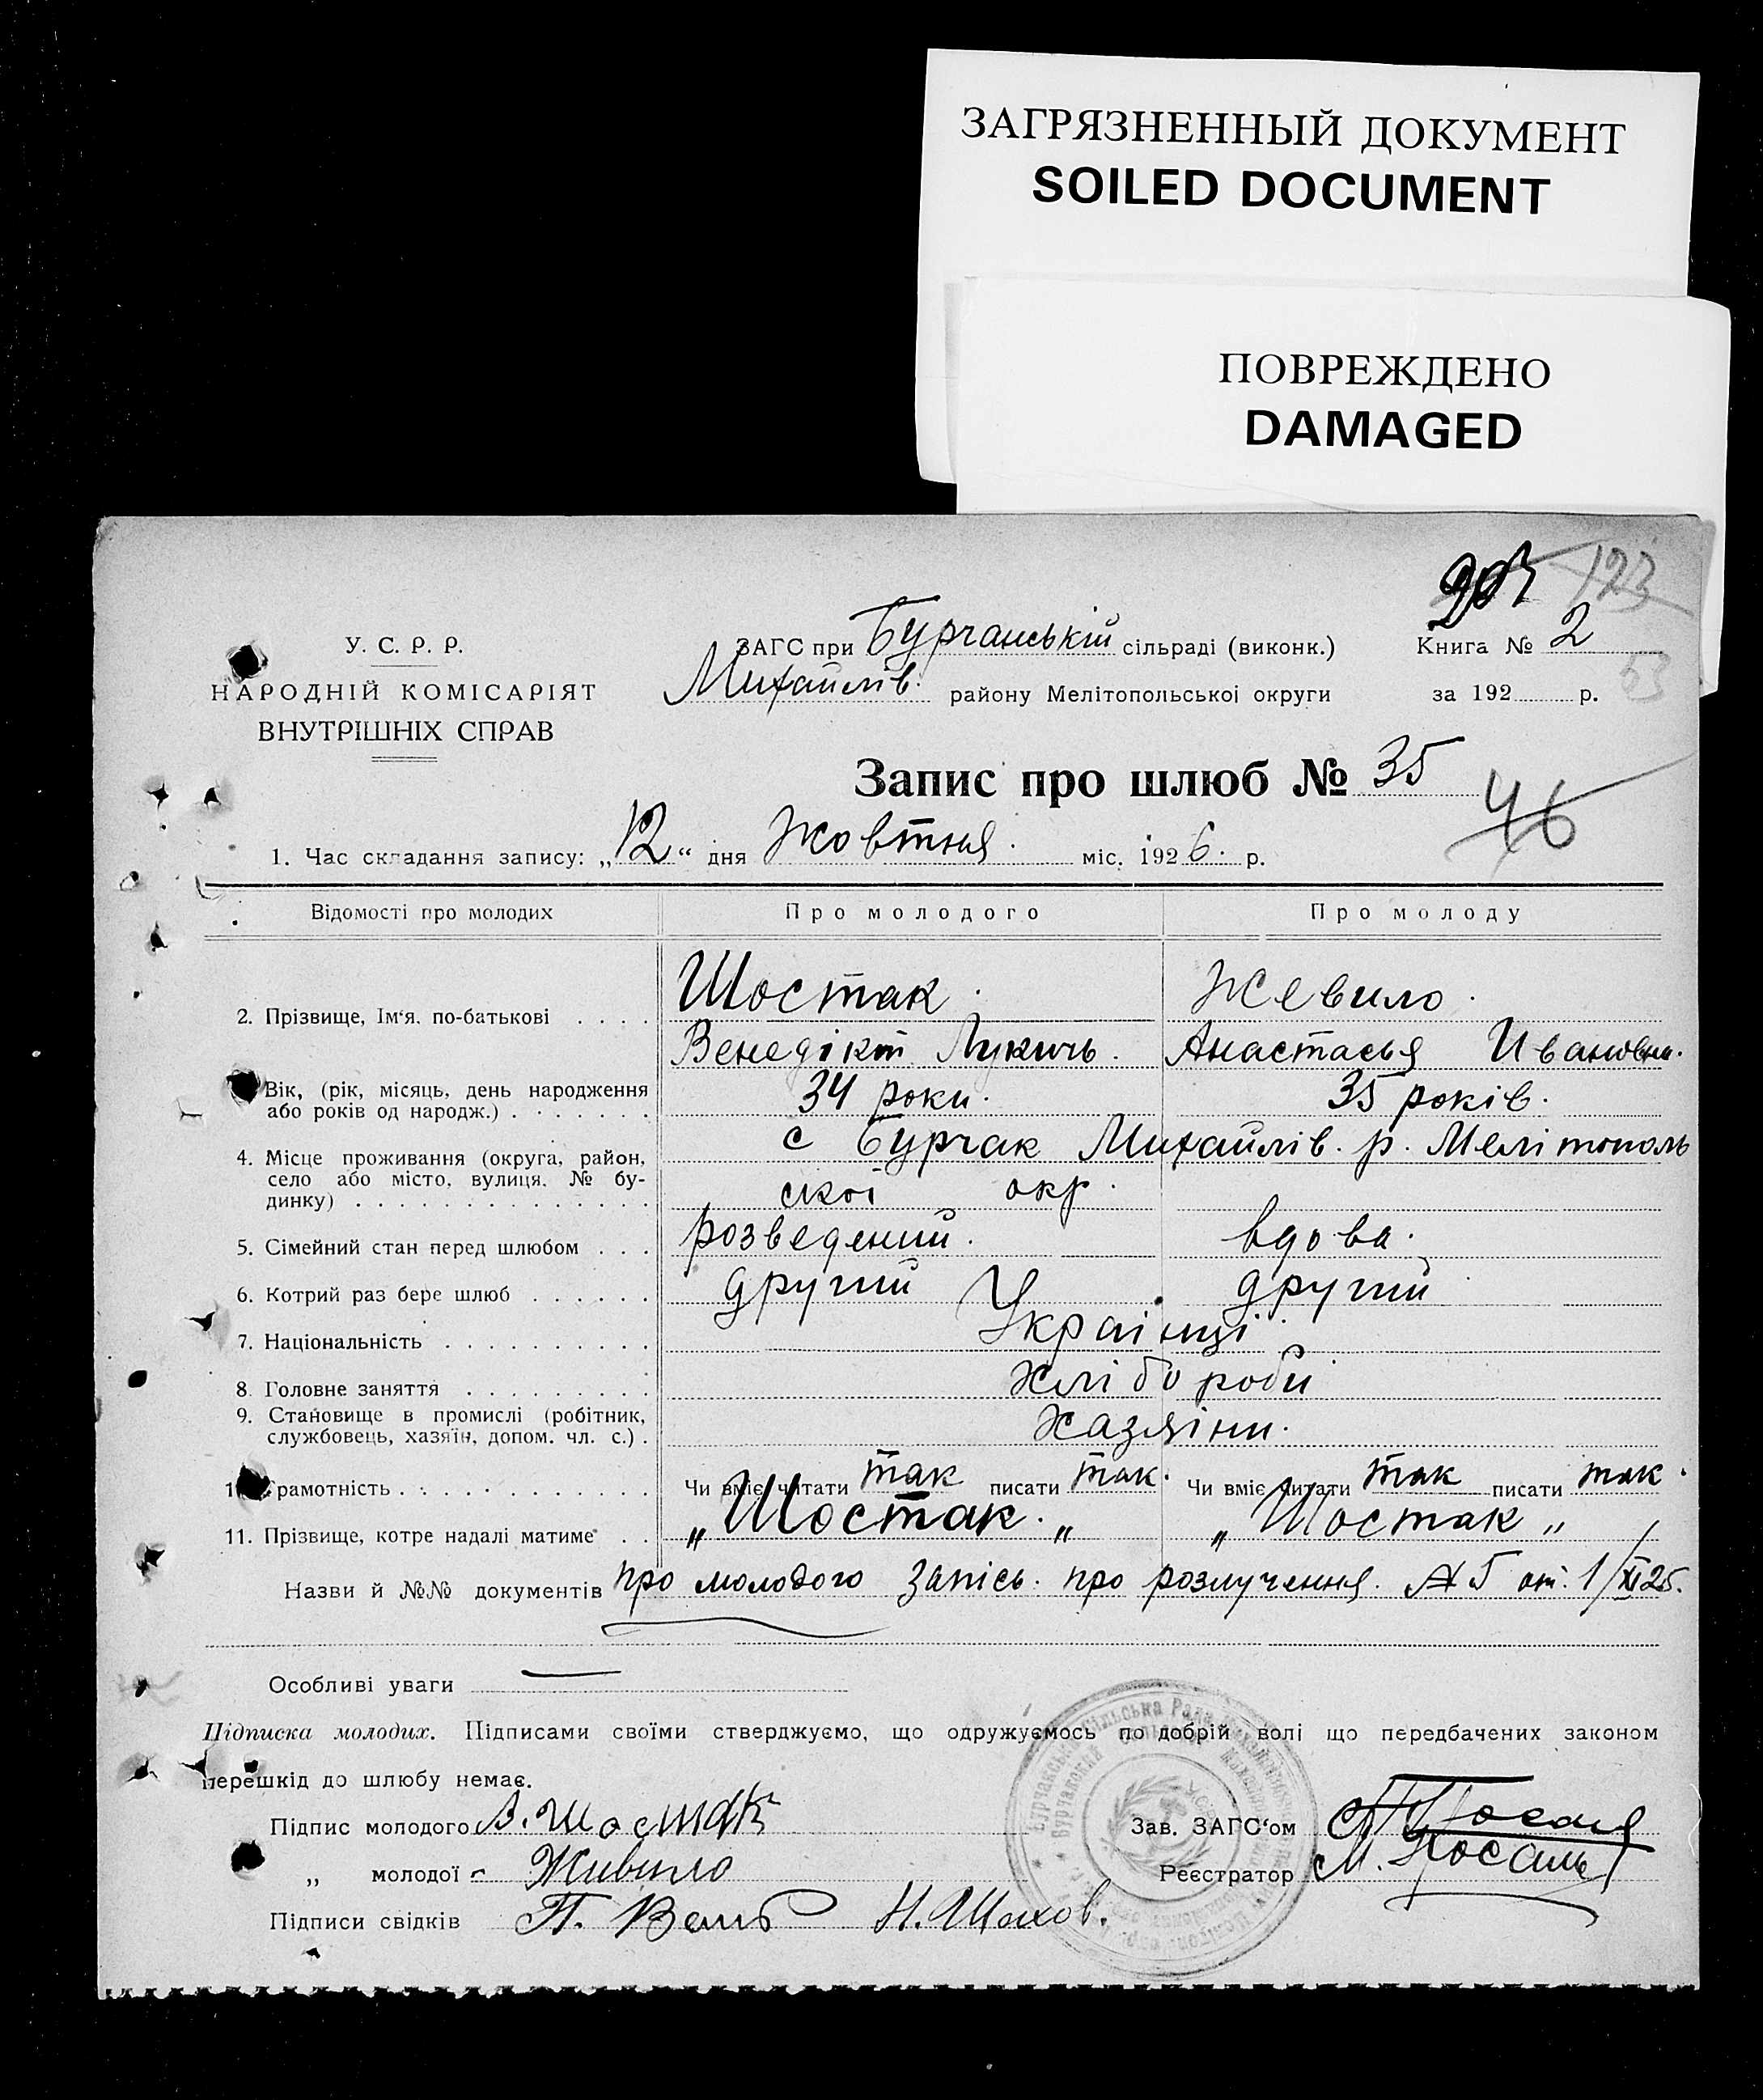 ЗАГРЯЗНЕННЫЙ ДОКУМЕНТ
SOILED DOCUMENT
ПОВРЕЖДЕНО
DAMAGED
123
У. С. Р. Р.
НАРОДНІЙ КОМІСАРІЯТ
ВНУТРІШНІХ СПРАВ
ЗАГС при Бурчанській сільраді (виконк.)
Михайлів. району Мелітопольскої округи
Книга № 2
за 192 р.
53
Запис про шлюб № 35
46
1. Час складання запису: „12“ дня Жовтня. міс. 1926. р.
Відомості про молодих Про молодого Про молоду
2. Прізвище, Ім‘я, по-батькові . . . . Шостак. Жевило.
Венедікт Лукичь. Анастасья Ивановна.
Вік, (рік, місяць, день народження
або років од народж.) . . . . . . . 34 роки. 35 років.
4. Місце проживання (округа, район,
село або місто, вулиця, № бу-
динку) . . . . . . . . . . . . . .
с Бурчак Михайлів. р. Мелітополь
ської окр.
5. Сімейний стан перед шлюбом . . . розведений. вдова.
6. Котрий раз бере шлюб . . . . . . другий другий
7. Національність . . . . . . . . . . Українці
8. Головне заняття . . . . . . . . . Хліборобы
9. Становище в промислі (робітник,
службовець, хазяїн, допом. чл. с.) . Хазяіни.
рамотність . . . . . . . . . . . Чи вміє читати так писати так. Чи вміє читати так писати так.
11. Прізвище, котре надалі матиме . . „Шостак.„ „Шостак„
Назви й №№ документів про молодого запісь. про розлучення. № 5 от. 1/XI 25.
Особливі уваги —
Підписка молодих. Підписами своїми стверджуємо, що одружуємось по добрій волі що передбачених законом
перешкід до шлюбу немає.
Підпис молодого В. Шостак
Зав. ЗАГС‘ом
„ молодої Живило
Реєстратор М.
Підписи свідків П. Н. Шахов.